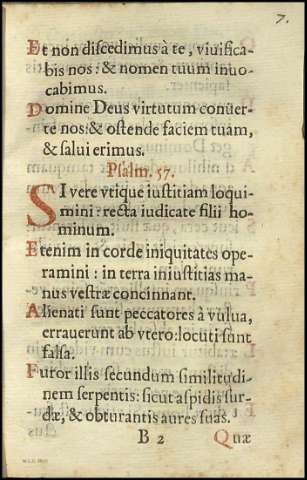 7.
Et non discedimus à te, viuifica-
bis nos: & nomen tuum inuo-
cabimus.
Domine Deus virtutum conuer-
te nos: & ostende faciem tuam,
& salui erimus.
Psalm. 57.
SI vere vtique iustitiam loqui-
mini: recta iudicate filii ho-
minum.
Etenim in corde iniquitates ope-
ramini: in terra iniustitias ma-
nus vestræ concinnant.
Alienati sunt peccatores à vulua,
errauerunt ab vtero: locuti sunt
falsa.
Furor illis secundum similitudi-
nem serpentis: sicut aspidis sur-
dæ, & obturantis aures suas.
B 2 Quæ